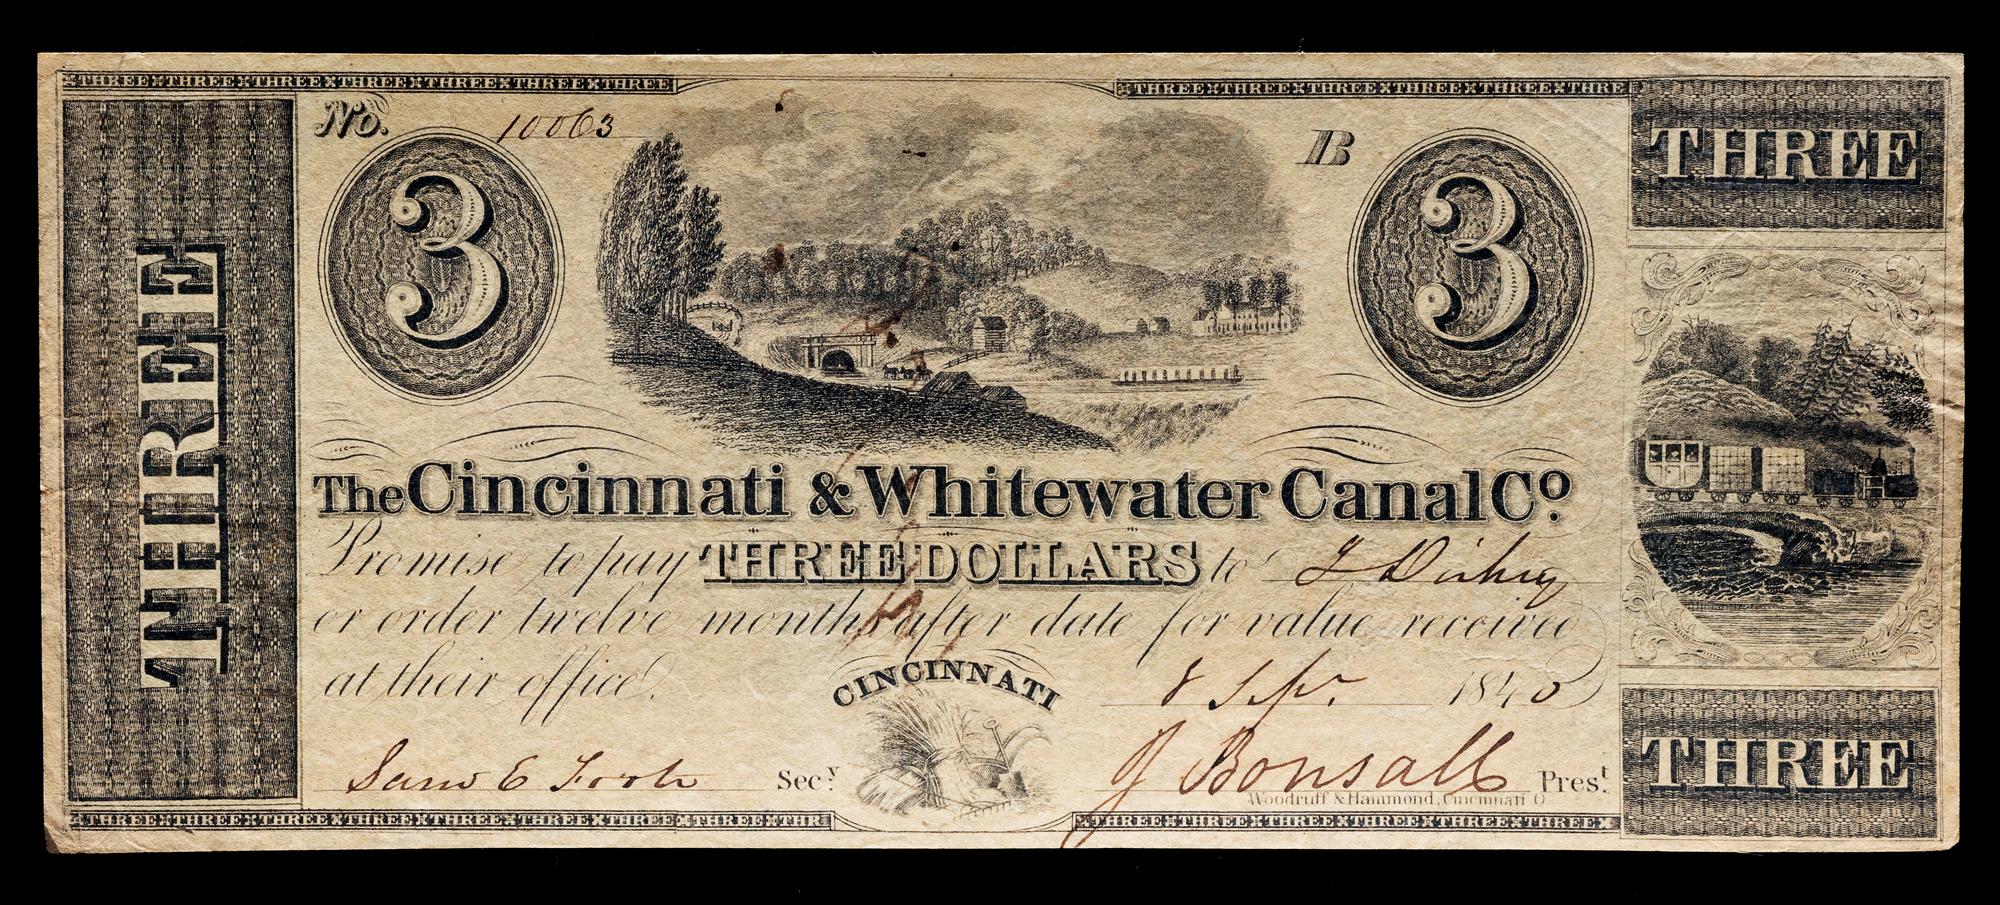 THREE THREE THREE THREE THREE THREE THREE
THREE THREE THREE THREE THREE THRE
THREE
No. 10063
B
3
3
THREE
The Cincinnati & Whitewater Canal Co.
Promise to pay THREE DOLLARS to
or order twelve months after date for value received
at their office.
CINCINNATI
8 Sepr. 1840
Sam E Foote Secy.
J Bonsall Prest.
Woodruff & Hammond, Cincinnati O
THREE
THREE THREE THREE THREE THREE THREE THREE THREE THR
THREE THREE THREE THREE THREE THREE